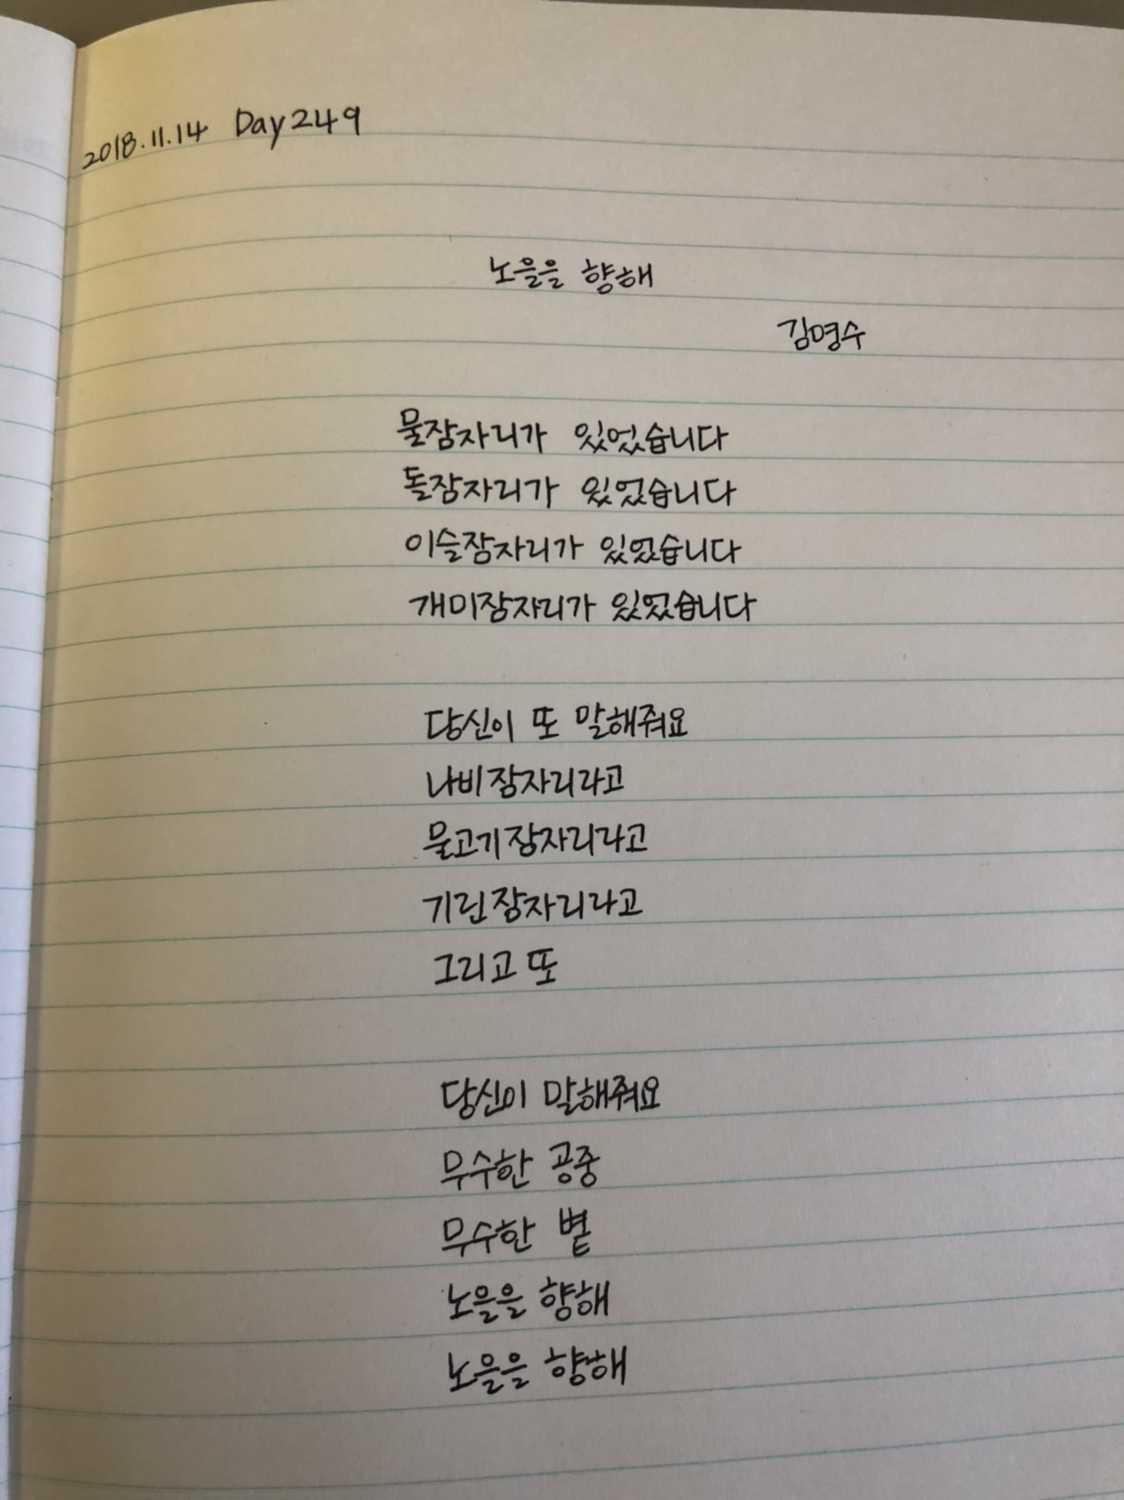 2018.11.14 Day 249
노을을 향해
김명수
물잠자리가 있었습니다
돌잠자리가 있었습니다
이슬잠자리가 있었습니다
개미잠자리가 있었습니다
당신이 또 말해줘요
나비잠자리라고
물고기잠자리라고
기린잠자리라고
그리고 또
당신이 말해줘요
무수한 공중
무수한 볕
노을을 향해
노을을 향해